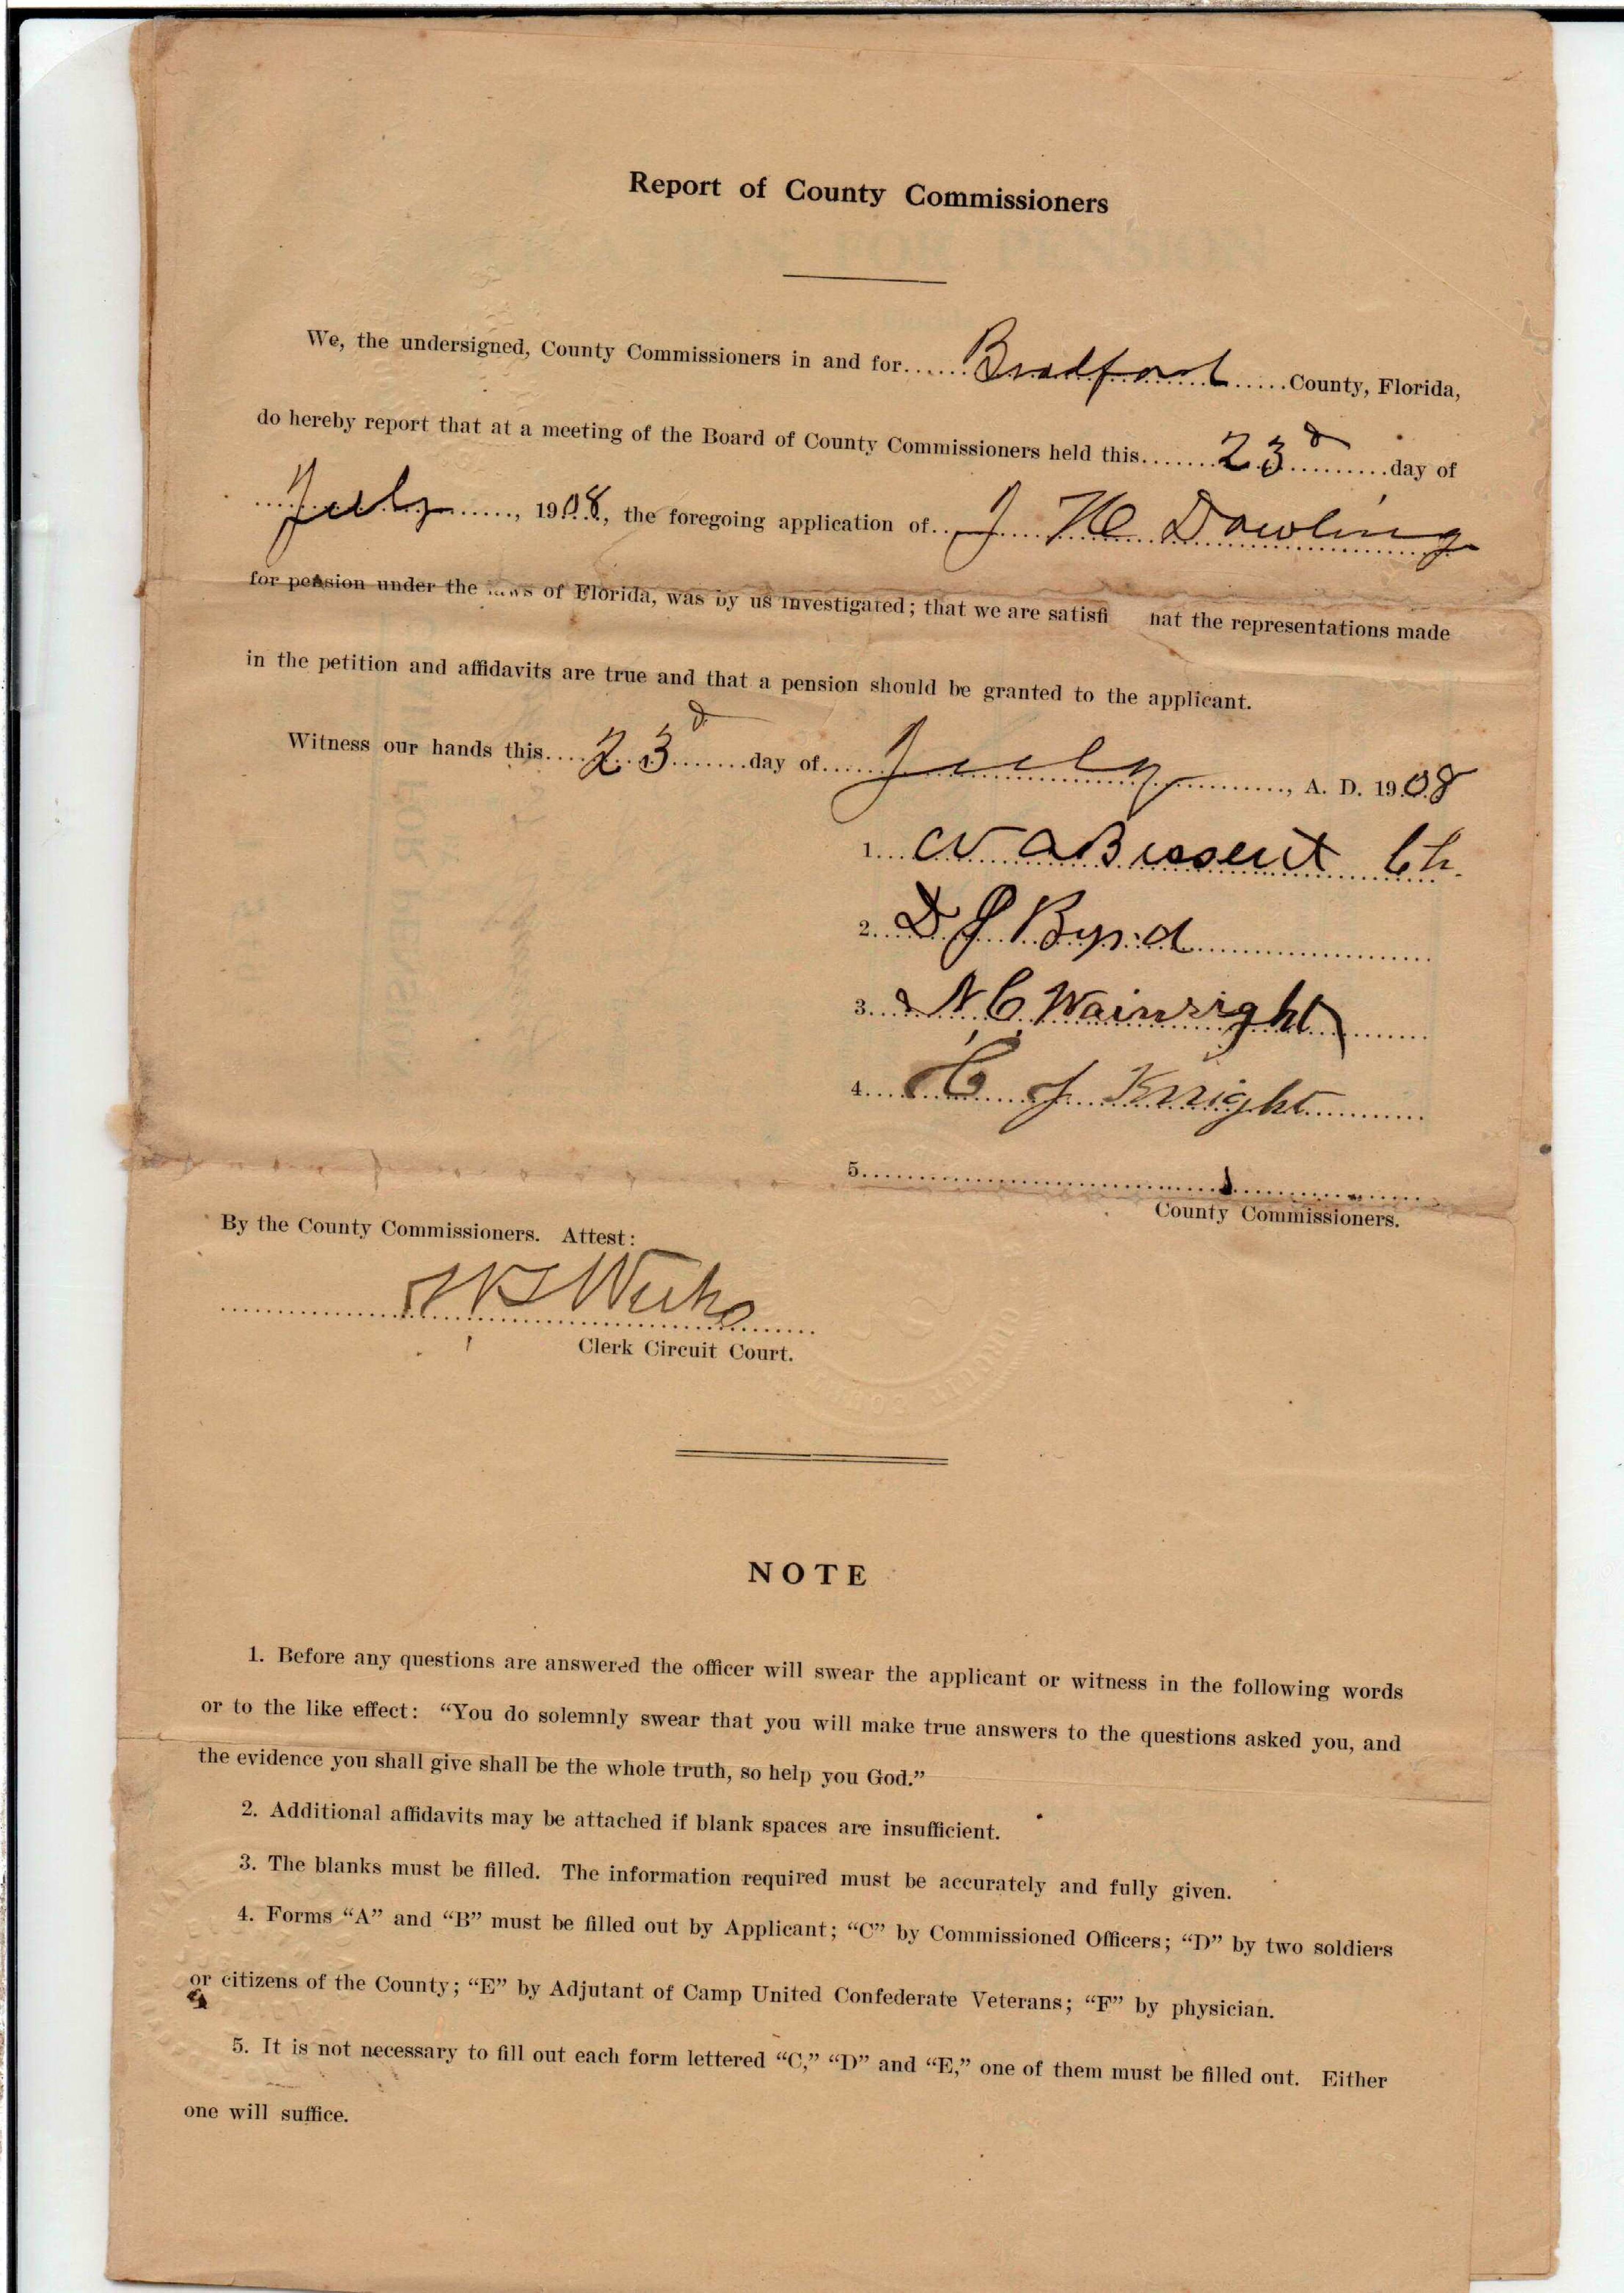 Report of County Commissioners
We, the undersigned, County Commissioners in and for......Bradford.....County, Florida,
do hereby report that at a meeting of the Board of County Commissioners held this.......23d.........day of
July......, 1908, the foregoing application of...J H Dowling
for pension under the laws of Florida, was by us investigated; that we are satisfi hat the representations made
in the petition and affidavits are true and that a pension should be granted to the applicant.
Witness our hands this....23d.......day of.....July..........., A. D. 1908
1... Ch.
2..D J Byrd
3...N. C. Wainright
4....C J Knight
5.
County Commissioners.
By the County Commissioners. Attest:
Weeks
Clerk Circuit Court.
NOTE
1. Before any questions are answered the officer will swear the applicant or witness in the following words
or to the like effect: “You do solemnly swear that you will make true answers to the questions asked you, and
the evidence you shall give shall be the whole truth, so help you God.”
2. Additional affidavits may be attached if blank spaces are insufficient.
3. The blanks must be filled. The information required must be accurately and fully given.
4. Forms “A” and “B” must be filled out by Applicant; “C” by Commissioned Officers; “D” by two soldiers
or citizens of the County; “E” by Adjutant of Camp United Confederate Veterans; “F” by physician.
5. It is not necessary to fill out each form lettered “C,” “D” and “E,” one of them must be filled out. Either
one will suffice.